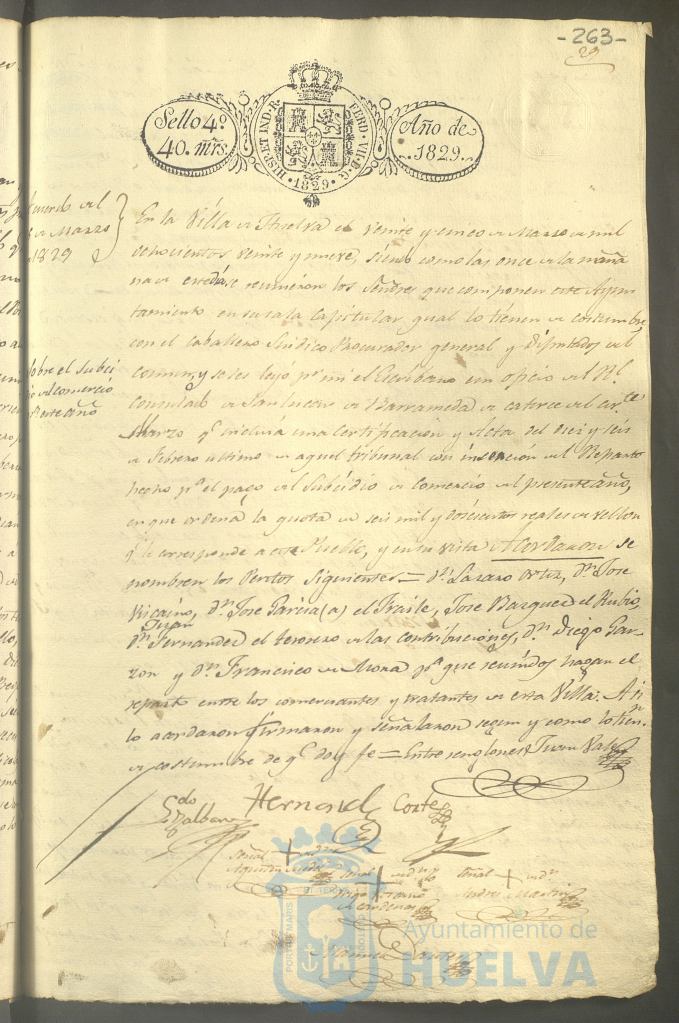 -263-
29
Sello 4º
40. mrs.
HISP. ET IND. R. FERD. VII. D. G. 1829.
Año de
1829.
Acuerdo del
de Marzo
1829
En la Villa de Huelva el veinte y cinco de Marzo de mil
ochocientos veinte y nueve, siendo como las once de la maña
na de este dia, se reunieron los Señores que componen este Ayun
tamiento en su sala Capitular qual lo tienen de costumbre
con el Caballero Sindico Procurador general y Diputados del
comun, y se les leyo pr mi el Escribano un oficio del Rl
sobre el subci
dio del comercio
de este año
Consulado de Sanlucar de Barrameda de catorce del corte
Marzo qe incluia una Certificacion y Acta del diez y seis
de Febrero ultimo de aquel tribunal con insercion del Reparto
hecho pa el pago del Subcidio de Comercio del presente año,
en que ordena la quota de seis mil y doscientos reales de vellon
qe le corresponde a este Pueblo, y en su vista Acordaron se
nombren los Peritos siguientes = Dn Lazaro Ortiz, Dn Jose
Vicaino, Dn Jose Garcia (a) el Fraile, Jose Bazquez el Rubio,
Juan
Dn Fernandez el tesorero de las contribuciones, Dn Diego Gar-
zon y Dn Francisco de Mora pa que reunidos hagan el
reparto entre los comerciantes y tratantes de esta Villa. Asi
lo acordaron firmaron y señalaron segun y como lo tien
de costumbre de qe doy fe = Entre renglones Juan Vale
Hernand Corte
señal + de
señal + de
señal + de
Andres Martin
PORTUS MARIS ET TERRAE CUSTODIA
Ayuntamiento de
HUELVA